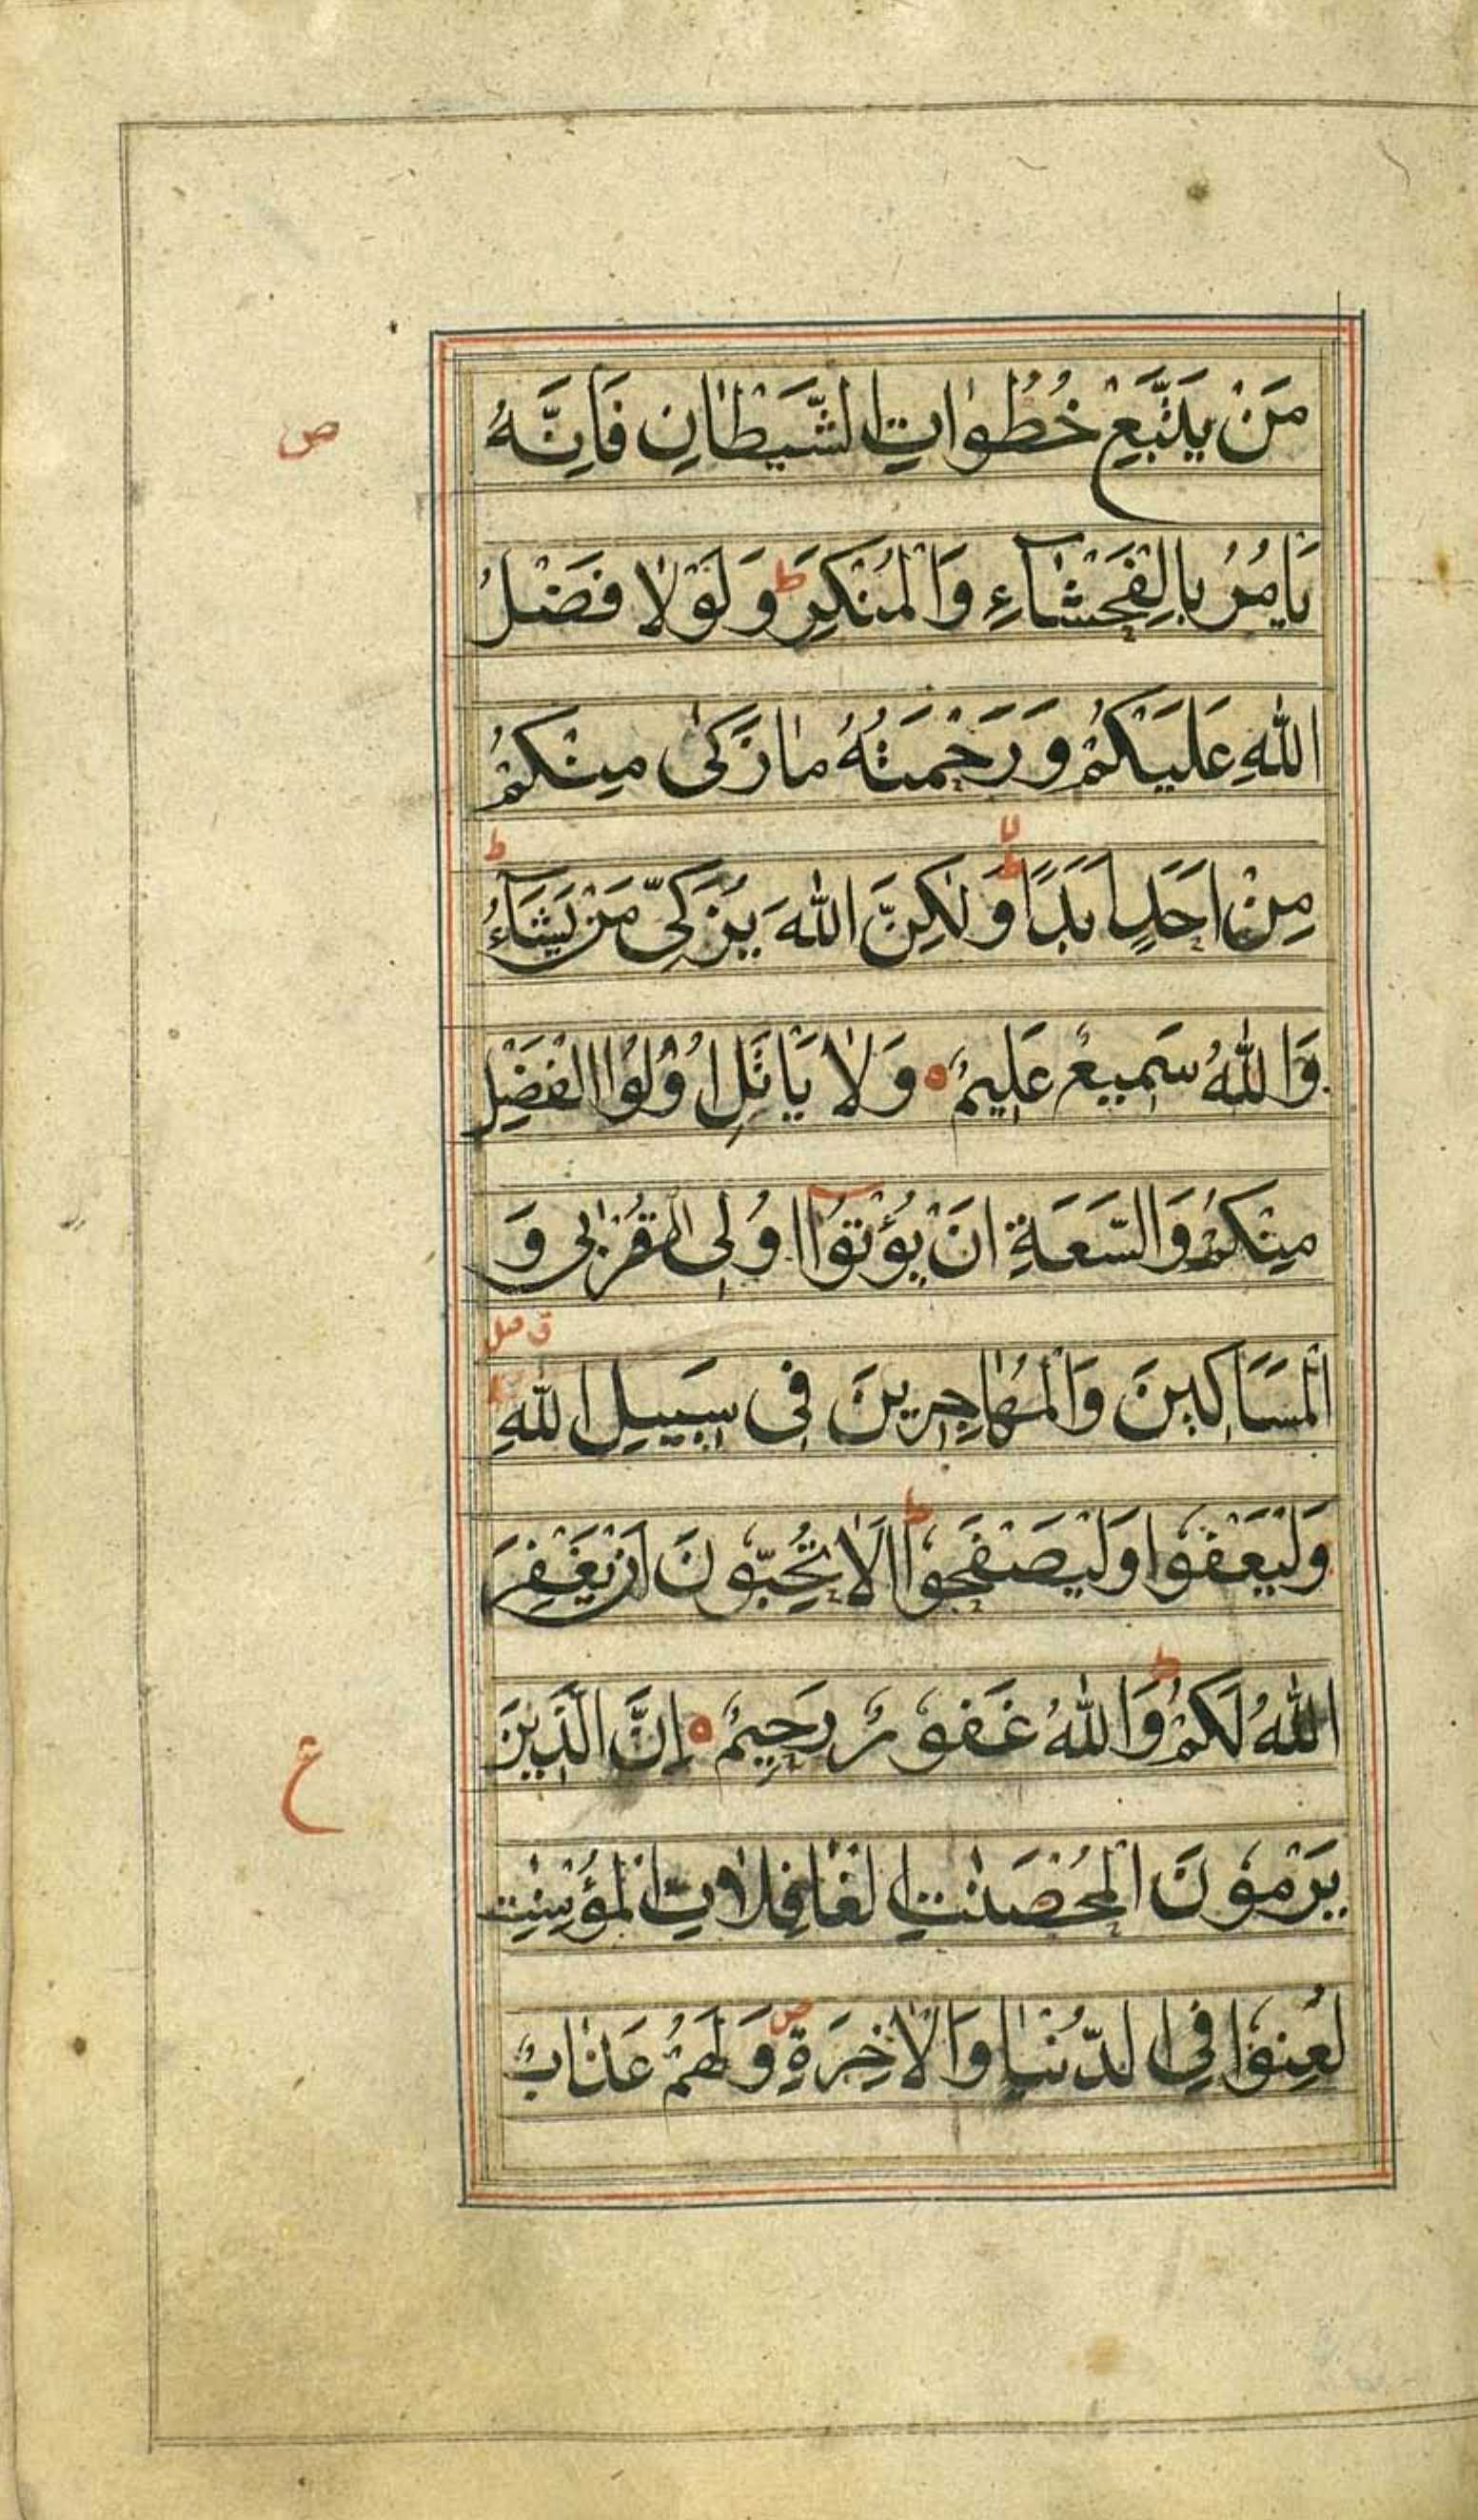 مَنْ يَتَّبِعْ خُطُوَاتِ الشَّيْطَانِ فَاِنَّهُ
ص
يَامُرُ بِالْفَحْشَآءِ وَالْمُنْكَرِ ط وَلَوْلَا فَضْلُ
اللّٰهِ عَلَيْكُمْ وَرَحْمَتُهُ مَا زَكٰى مِنْكُمْ
مِنْ اَحَدٍ اَبَدًا وَلٰكِنَّ اللّٰهَ يُزَكِّى مَنْ يَشَآءُ ط
وَاللّٰهُ سَمِيعٌ عَلِيمٌ ٥ وَلَا يَاتَلِ اُولُوا الْفَضْلِ
مِنْكُمْ وَالسَّعَةِ اَنْ يُؤْتُوٓا اُولِى الْقُرْبٰى وَ
الْمَسَاكِينَ وَالْمُهَاجِرِينَ فِى سَبِيلِ اللّٰهِ ق صل
وَلْيَعْفُوا وَلْيَصْفَحُوا ط اَلَا تُحِبُّونَ اَنْ يَغْفِرَ
اللّٰهُ لَكُمْ ط وَاللّٰهُ غَفُورٌ رَحِيمٌ ٥ اِنَّ الَّذِينَ
ع
يَرْمُونَ الْمُحْصَنٰتِ الْغَافِلَاتِ الْمُؤْمِنٰتِ
لُعِنُوا فِى الدُّنْيَا وَالْاٰخِرَةِ ص وَلَهُمْ عَذَابٌ